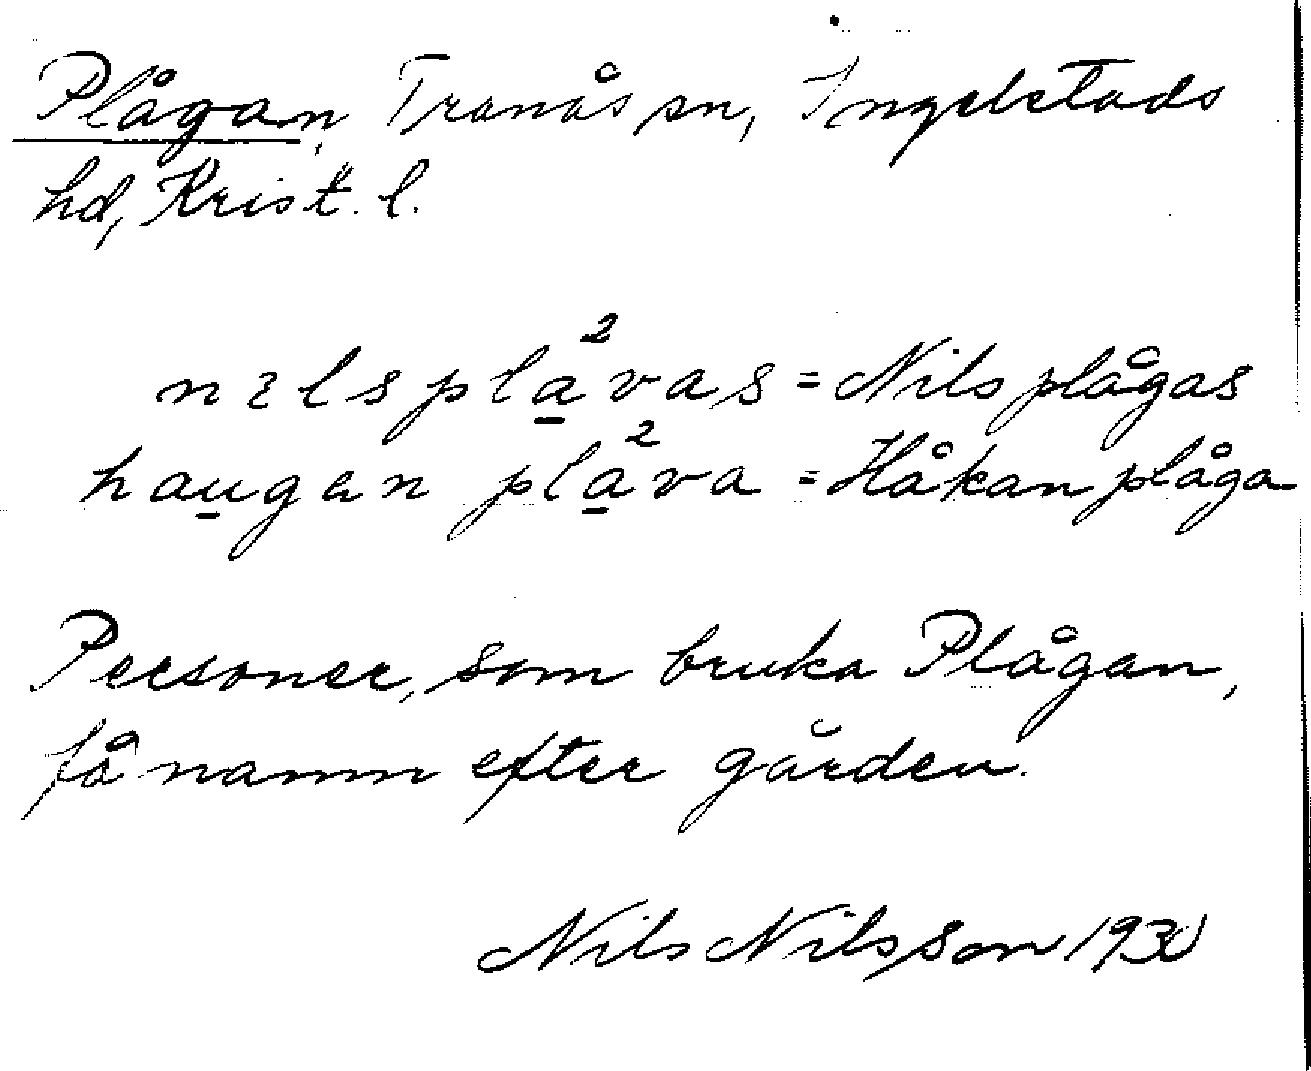 Plågan, Tranås sn, Ingelstads
hd, Krist. l.
nɩls pla̱²vas = Nils plågas
hau̱gan pla̱²va = Håkan plåga
Personer, som bruka Plågan,
få namn efter gården.
Nils Nilsson 1930